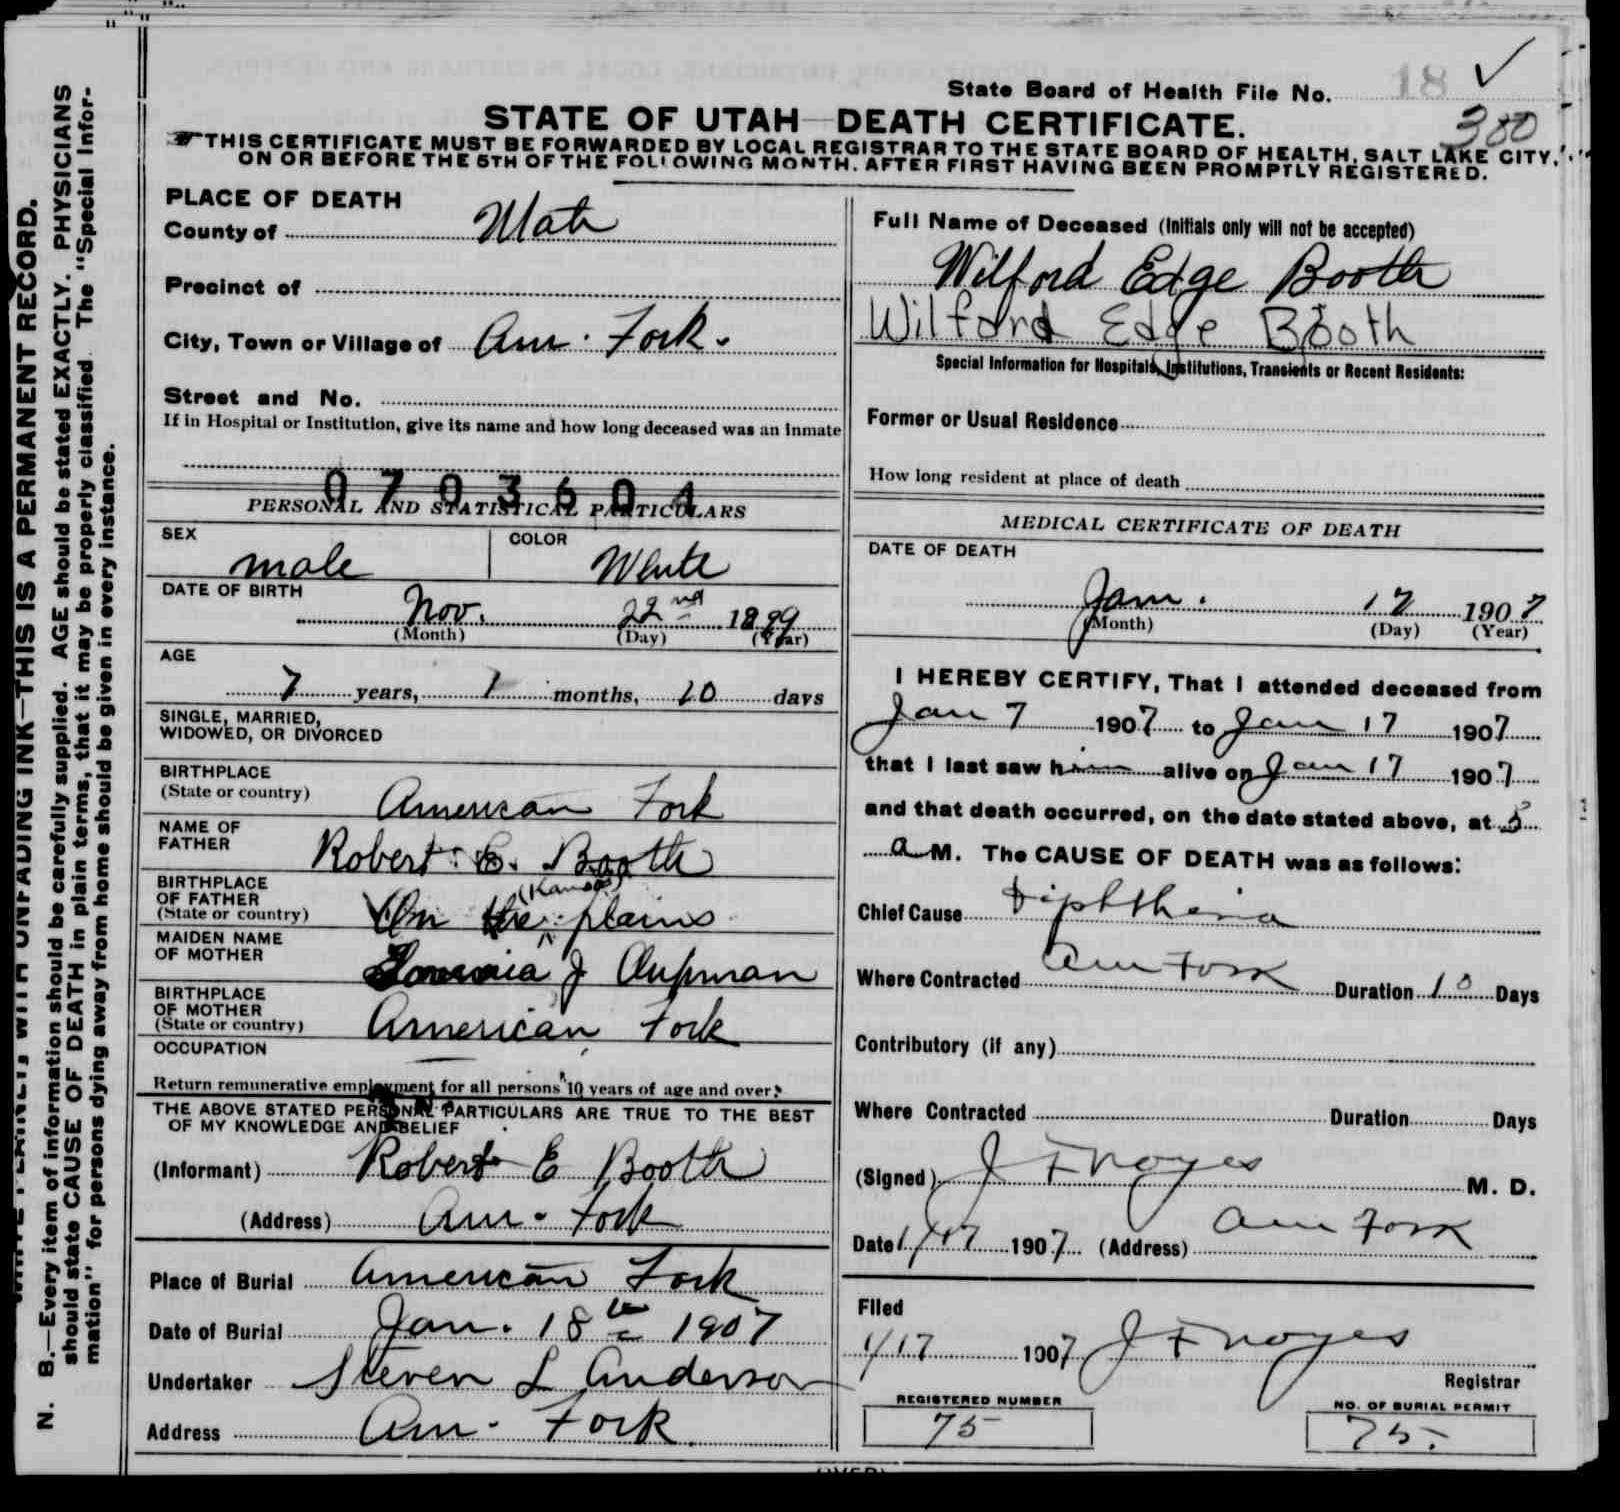 State Board of Health File No. 18 ✓
380
STATE OF UTAH—DEATH CERTIFICATE.
THIS CERTIFICATE MUST BE FORWARDED BY LOCAL REGISTRAR TO THE STATE BOARD OF HEALTH, SALT LAKE CITY,
ON OR BEFORE THE 5TH OF THE FOLLOWING MONTH, AFTER FIRST HAVING BEEN PROMPTLY REGISTERED.
PLACE OF DEATH
County of Utah
Precinct of
City, Town or Village of Am. Fork.
Street and No.
If in Hospital or Institution, give its name and how long deceased was an inmate
0703604
PERSONAL AND STATISTICAL PARTICULARS
SEX male COLOR White
DATE OF BIRTH
Nov. 22nd 1899
(Month) (Day) (Year)
AGE
7 years, 1 months, 10 days
SINGLE, MARRIED,
WIDOWED, OR DIVORCED
BIRTHPLACE
(State or country) American Fork
NAME OF
FATHER Robert E. Booth
BIRTHPLACE
OF FATHER (Kansas)
(State or country) On the plains
MAIDEN NAME
OF MOTHER J Chipman
BIRTHPLACE
OF MOTHER
(State or country) American Fork
OCCUPATION
Return remunerative employment for all persons 10 years of age and over:
THE ABOVE STATED PERSONAL PARTICULARS ARE TRUE TO THE BEST
OF MY KNOWLEDGE AND BELIEF
(Informant) Robert E Booth
(Address) Am. Fork
Place of Burial American Fork
Date of Burial Jan. 18th 1907
Undertaker Steven L Anderson
Address Am. Fork
Full Name of Deceased (Initials only will not be accepted)
Wilford Edge Booth
Wilford Edge Booth
Special Information for Hospitals, Institutions, Transients or Recent Residents:
Former or Usual Residence
How long resident at place of death
MEDICAL CERTIFICATE OF DEATH
DATE OF DEATH
Jan. 17 1907
(Month) (Day) (Year)
I HEREBY CERTIFY, That I attended deceased from
Jan 7 1907 to Jan 17 1907
that I last saw him alive on Jan 17 1907
and that death occurred, on the date stated above, at 5
a M. The CAUSE OF DEATH was as follows:
Chief Cause Diphtheria
Where Contracted Am Fork Duration 10 Days
Contributory (if any)
Where Contracted Duration Days
(Signed) J F Noyes M. D.
Date 1/17 1907 (Address) Am Fork
Filed
1/17 1907 J F Noyes
Registrar
REGISTERED NUMBER
75
NO. OF BURIAL PERMIT
75.
(OVER)
WRITE PLAINLY WITH UNFADING INK—THIS IS A PERMANENT RECORD.
N. B.—Every item of information should be carefully supplied. AGE should be stated EXACTLY. PHYSICIANS
should state CAUSE OF DEATH in plain terms, that it may be properly classified. The "Special Infor-
mation" for persons dying away from home should be given in every instance.